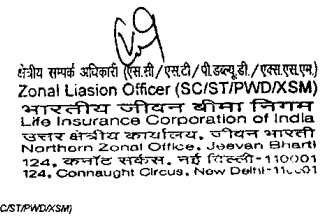 क्षेत्रीय सम्पर्क अधिकारी (एस.सी/एसटी/पी.डब्ल्यू.डी./एक्स.एस.एम.)
Zonal Liasion Officer (SC/ST/PWD/XSM)
भारतीय जीवन बीमा निगम
Life Insurance Corporation of India
उत्तर क्षेत्रीय कार्यालय, जीवन भारती
Northern Zonal Office, Jeevan Bharti
124, कनॉट सर्कस, नई दिल्ली-110001
124, Connaught Circus, New Delhi-110001
C/ST/PWD/XSM)